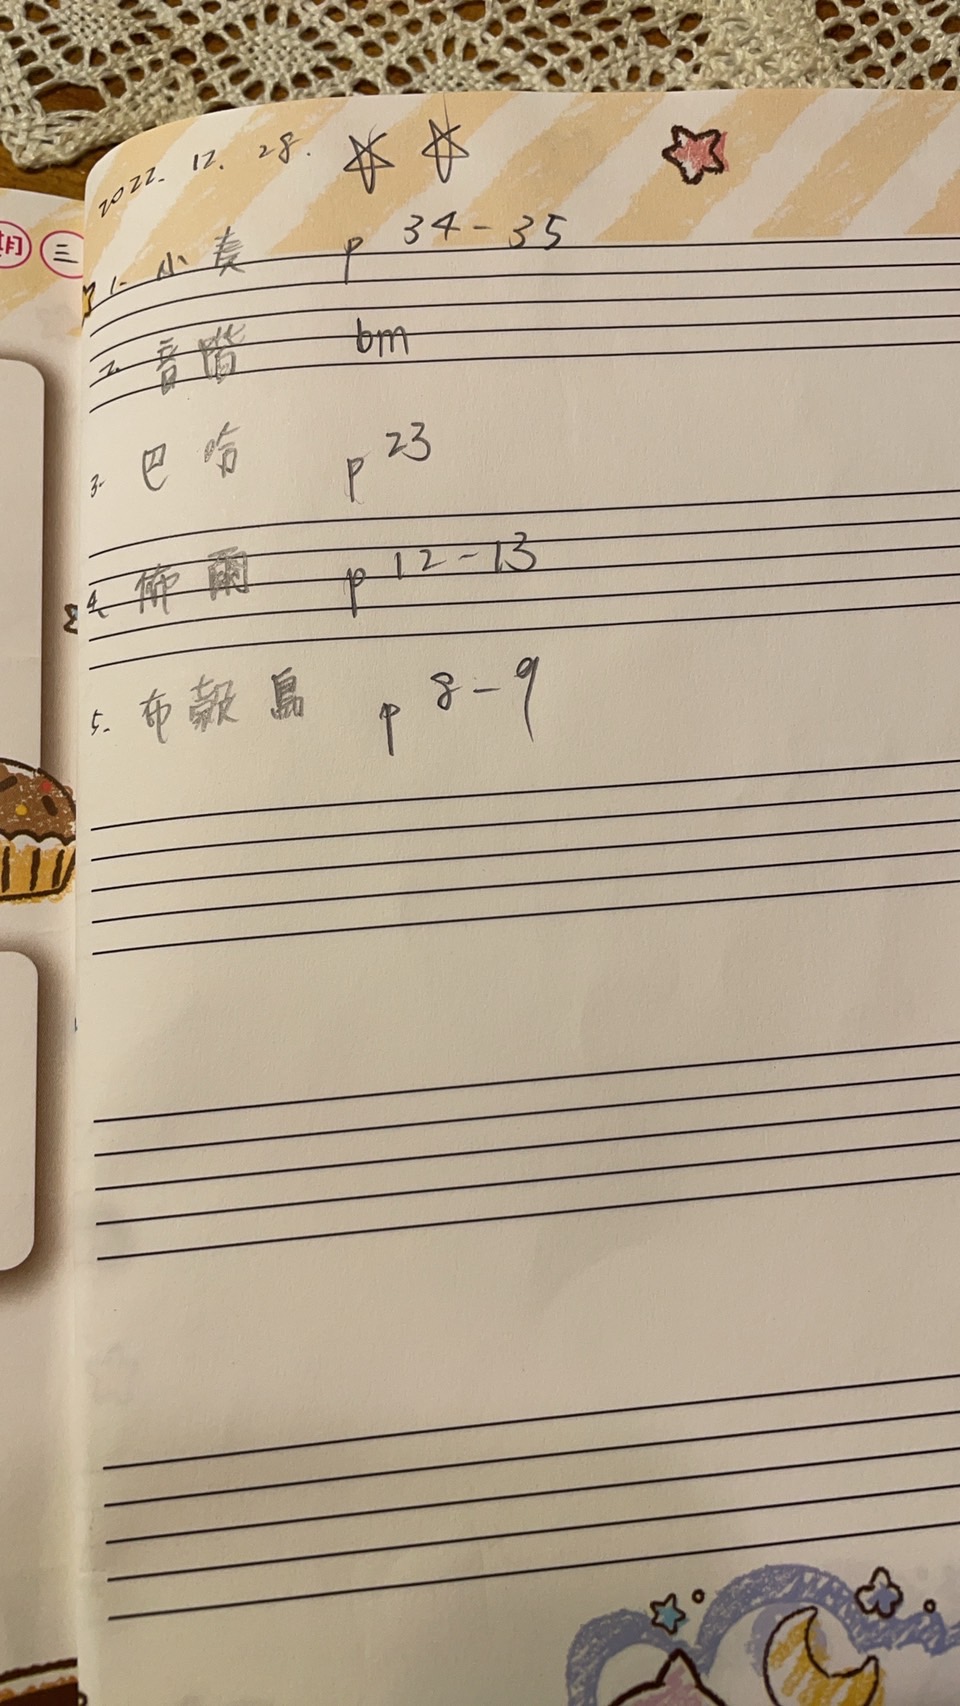 2022. 12. 28.
期 三
1. 小麦 p 34-35
2. 音階 bm
3. 巴哈 p 23
4. 佈爾 p 12-13
5. 布穀鳥 p 8-9